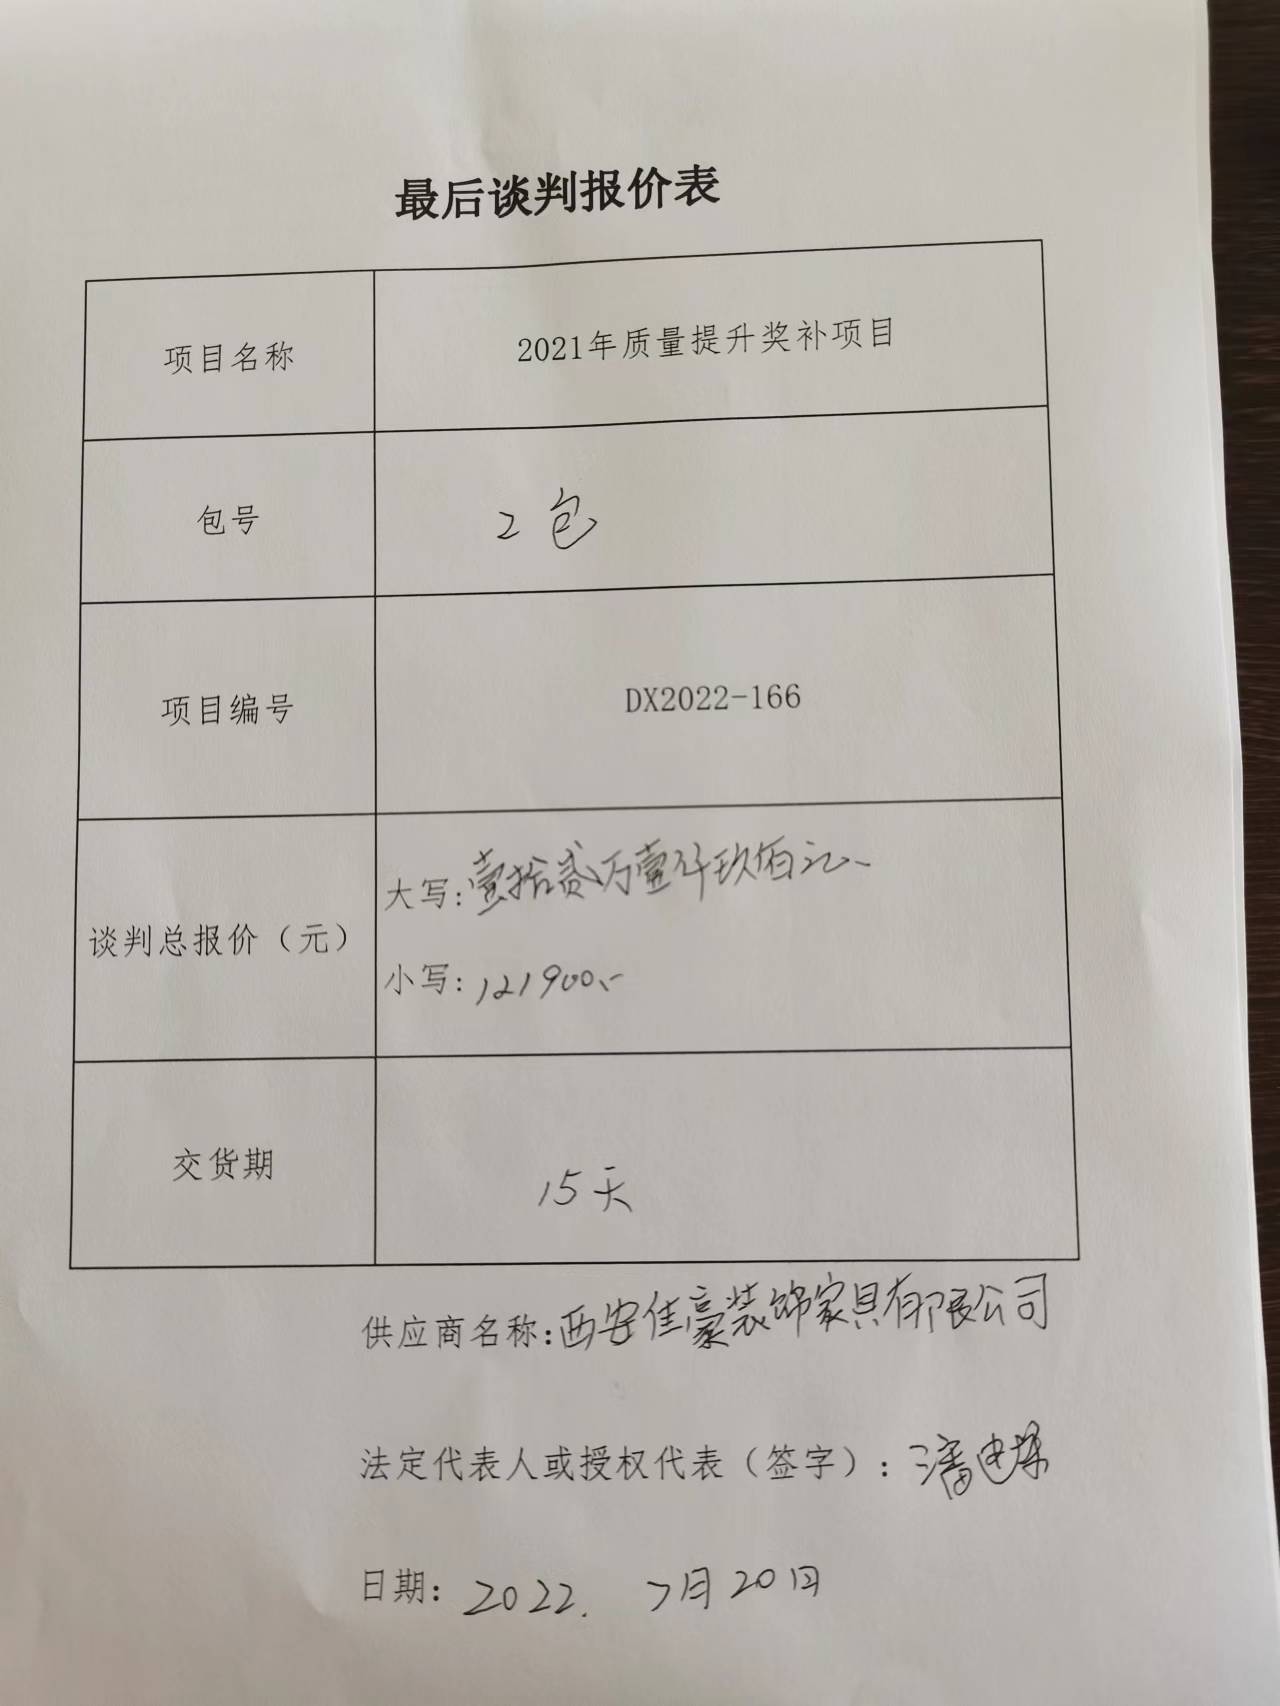 最后谈判报价表
项目名称
2021年质量提升奖补项目
包号
2包
项目编号
DX2022-166
谈判总报价（元）
大写:壹拾贰万壹仟玖佰元、
小写:121900、-
交货期
15天
供应商名称:西安佳豪装饰家具有限公司
法定代表人或授权代表（签字）:潘
日期:2022. 7月20日